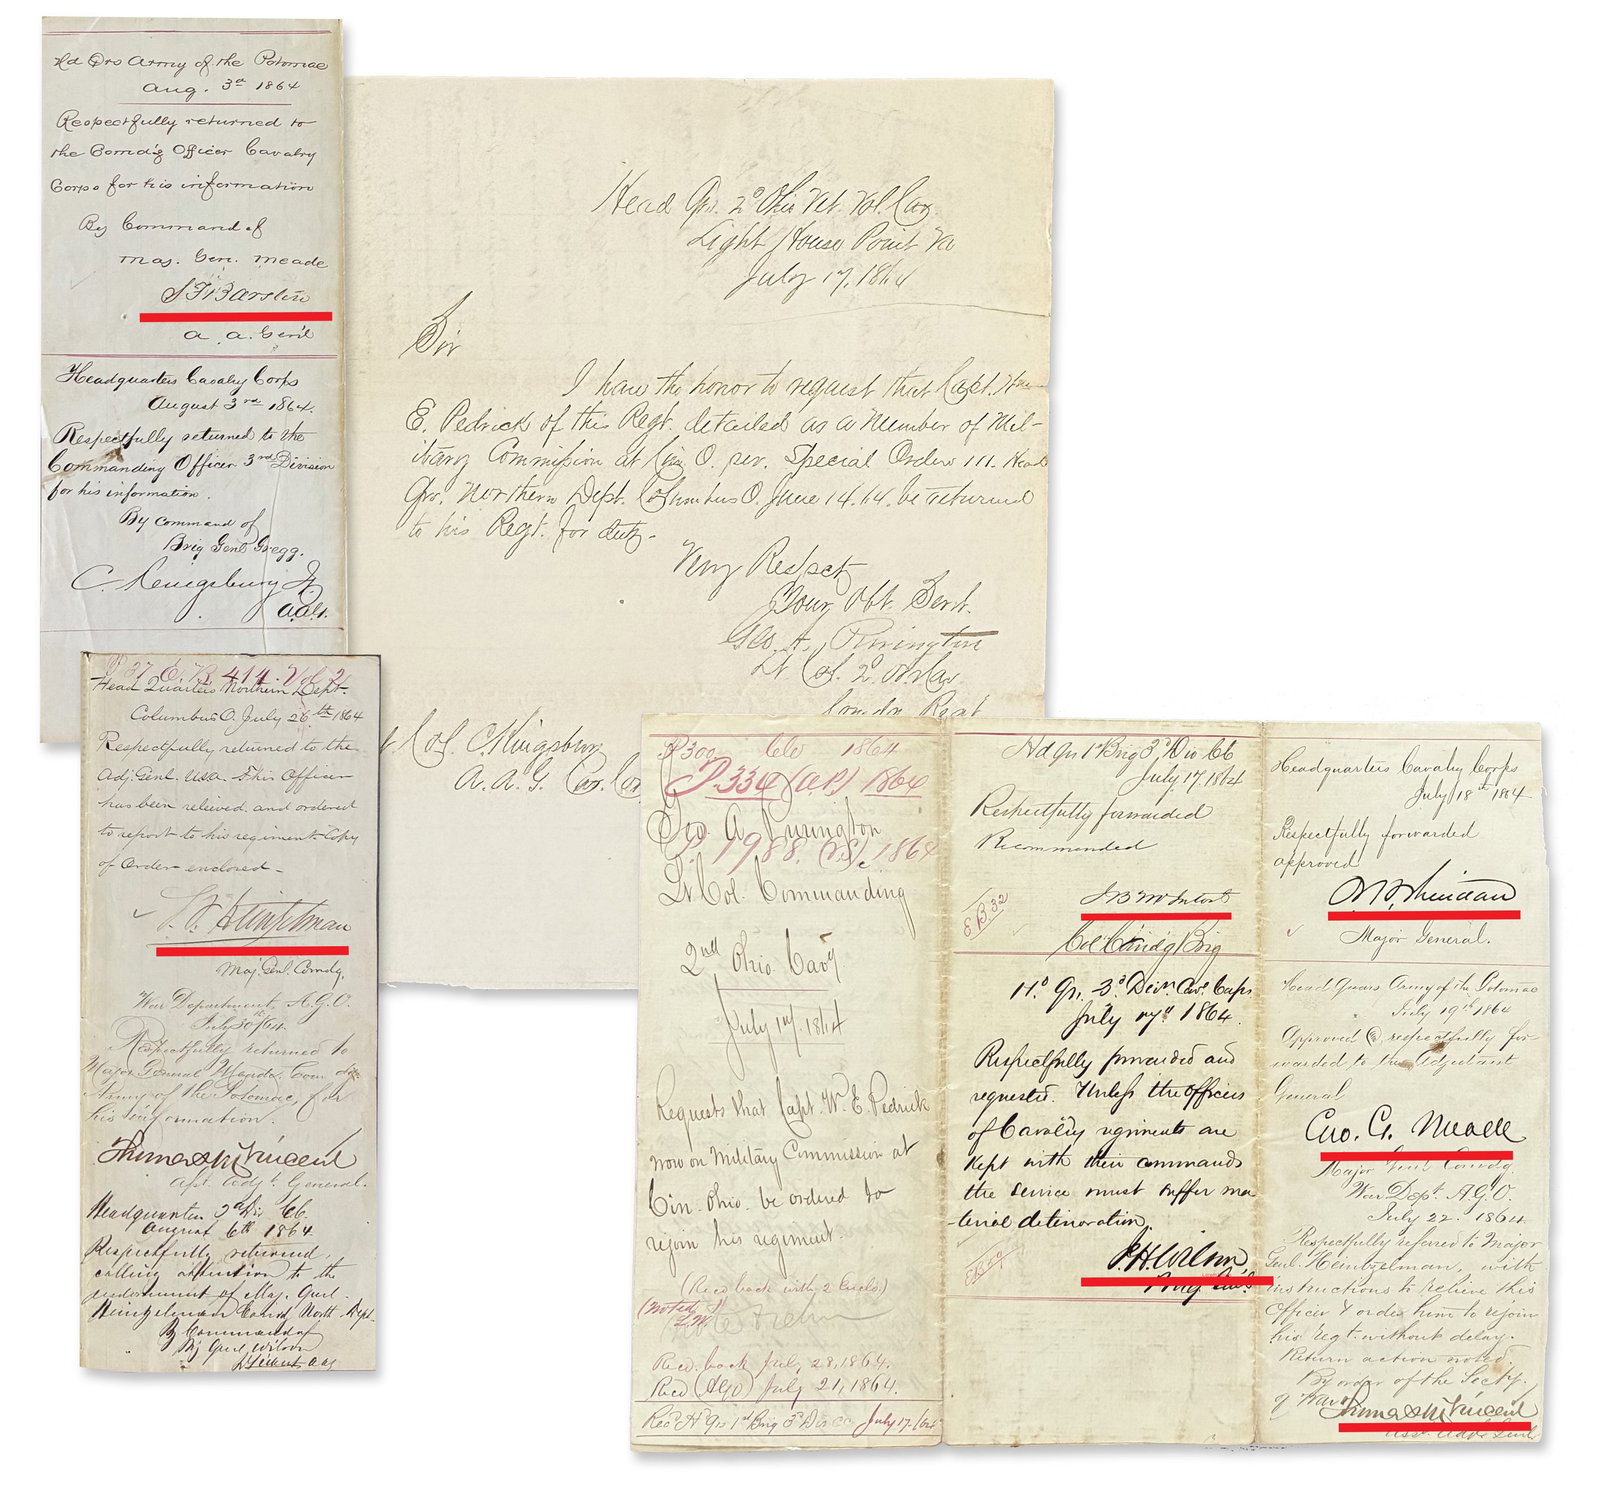 Hd Qrs Army of the Potomac
Aug. 3d 1864
Respectfully returned to
the Comd'g Officer Cavalry
Corps for his information
By Command of
Maj. Gen. Meade
S F Barstow
A. A. Gen'l
Headquarters Cavalry Corps
August 3rd 1864.
Respectfully returned to the
Commanding Officer 3rd Division
for his information.
By command of
Brig Genl Gregg.
C. Kingsbury Jr
A.A.G.
Head Qrs. 2d Ohio Vet. Vol. Cav.
Light House Point Va
July 17, 1864
Sir
I have the honor to request that Capt. Wm
E. Pedrick of this Regt. detailed as a Member of Mil-
itary Commission at Cin. O. per. Special Orders 111. Head
Qrs. Northern Dept. Columbus O. June 14. 64. be returned
to his Regt. for duty.
Very Respect
Your Obt. Servt.
Geo. A. Purington
Lt Col. 2d O. Cav.
Comdg Regt
Col. C. Kingsbury
A. A. G. Cav. Co
P 37 E. B. 414. Vol. 2
Head Quarters Northern Dept.
Columbus O. July 26th 1864
Respectfully returned to the
Adj. Genl. USA. This Officer
has been relieved and ordered
to report to his regiment. Copy
of Order enclosed -
S. P. Heintzelman
Maj. Genl. Comdg.
War Department, A.G.O.
July 30th 64.
Respectfully returned to
Major General Meade Com dg
Army of the Potomac, for
his information.
Thomas M Vincent
Asst. Adjt. General.
Headquarters 3d Div CC.
August 6th 1864
Respectfully returned,
calling attention to the
endorsement of Maj. Genl.
Heintzelman Comdg North. Dept.
By Command of
Brig Genl Wilson
P 300 CC 1864
P. 334 (AP) 1864
Geo. A. Purington
P. 1988. (VS), 1864
Lt Col. Commanding
2nd Ohio Cavy
July 17. 1864
Requests that Capt. W. E. Pedrick
now on Military Commission at
Cin. Ohio. be ordered to
rejoin his regiment.
(Recd back with 2 Encls.)
(Noted
Recd. back July 28, 1864.
Recd (AGO) July 21, 1864.
Rec'd H Qrs 1st Brig 3d Div CC July 17. /64
Hd Qrs 1st Brig 3d Div CC
July 17. 1864
Respectfully forwarded
Recommended
E.B. 32
J B McIntosh
Col Comdg Brig
Hd Qrs. 3d Divn. Cav. Corps
July 17d 1864.
Respectfully forwarded and
requested. Unless the officers
of Cavalry regiments are
kept with their commands
the service must suffer ma
-terial deterioration.
J.H. Wilson
Brig. Gen'l
Headquarters Cavalry Corps
July 18th 1864
Respectfully forwarded
approved
P. H. Sheridan
Major General.
Head Quars Army of the Potomac
July 19th 1864
Approved & respectfully for-
warded to the Adjutant
General
Geo. G. Meade
Major Genl Comdg.
War Dept. A.G.O.
July 22. 1864
Respectfully referred to Major
Genl. Heintzelman, with
instructions to relieve this
Officer & order him to rejoin
his regt. without delay.
Return action noted.
By order of the Secty.
of War
Thomas M Vincent
Asst. Adjt Genl